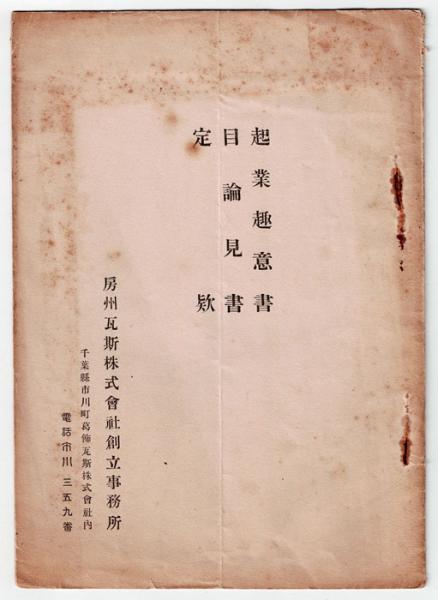 起業趣意書
目論見書
定款
房州瓦斯株式會社創立事務所
千葉縣市川町葛飾瓦斯株式會社內
電話市川三五九番